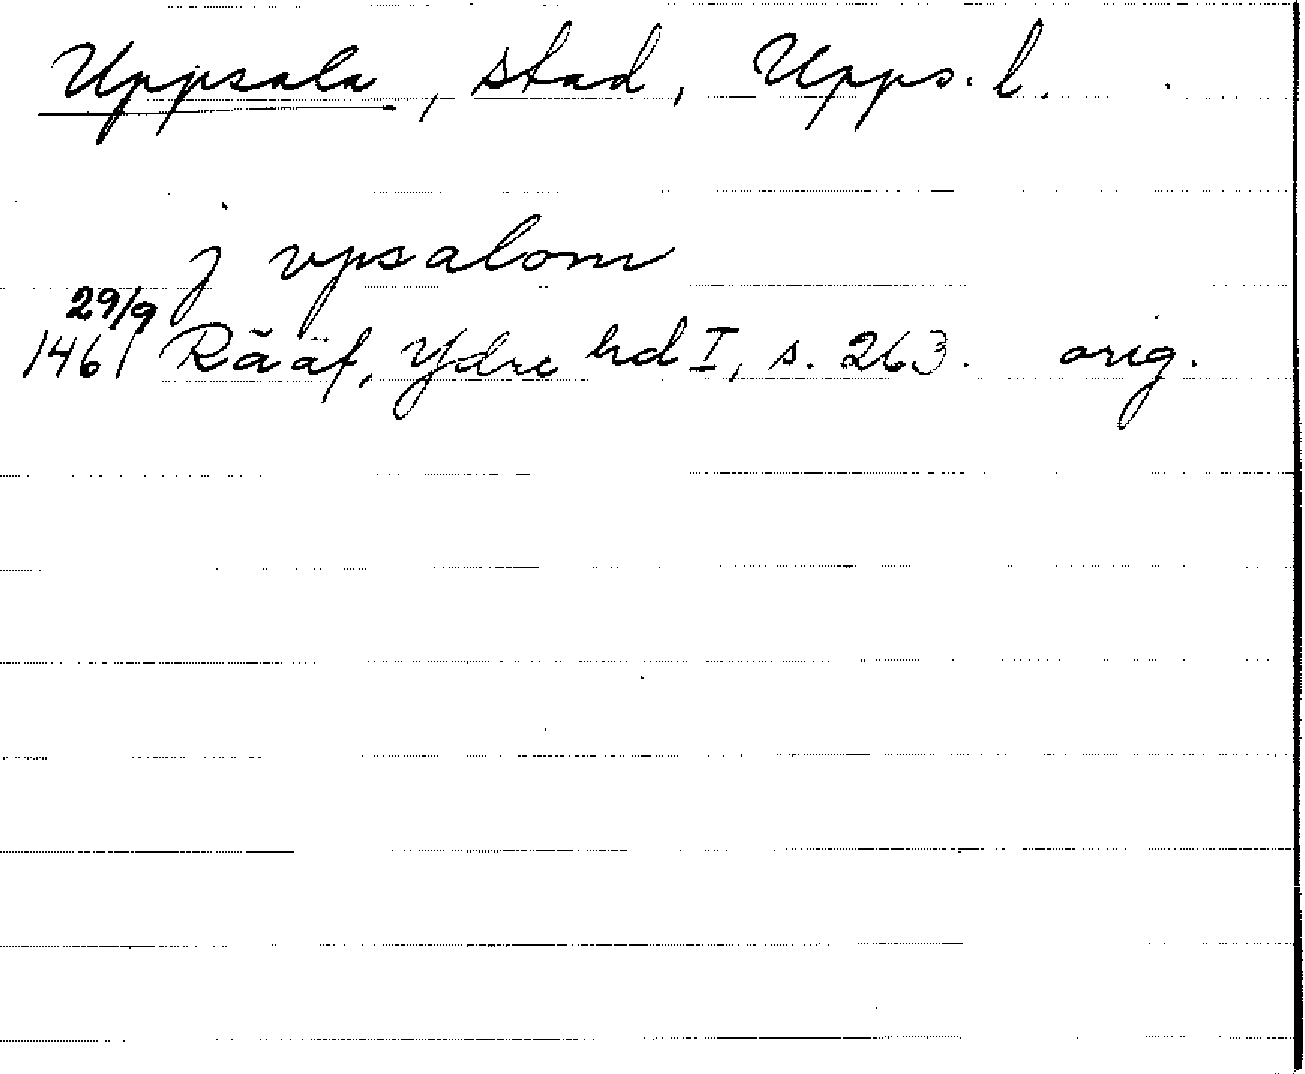 Uppsala, stad, Upps. l.
j vpsalom
29/9
1461 Rääf, Ydre hd I, s. 263. orig.